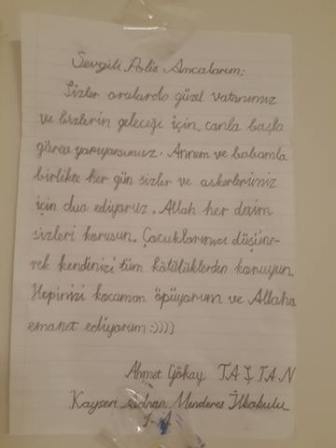 Sevgili Polis Amcalarım;
Sizler oralarda güzel vatanımız
ve bizlerin geleceği için canla başla
görev yapıyorsunuz. Annem ve babamla
birlikte her gün sizler ve askerlerimiz
için dua ediyoruz. Allah her daim
sizleri korusun. Çocuklarınızı düşüne-
rek kendinizi tüm kötülüklerden koruyun.
Hepinizi kocaman öpüyorum ve Allaha
emanet ediyorum :))))
Ahmet Gökay TAŞTAN
Kayseri Adnan Menderes İlkokulu